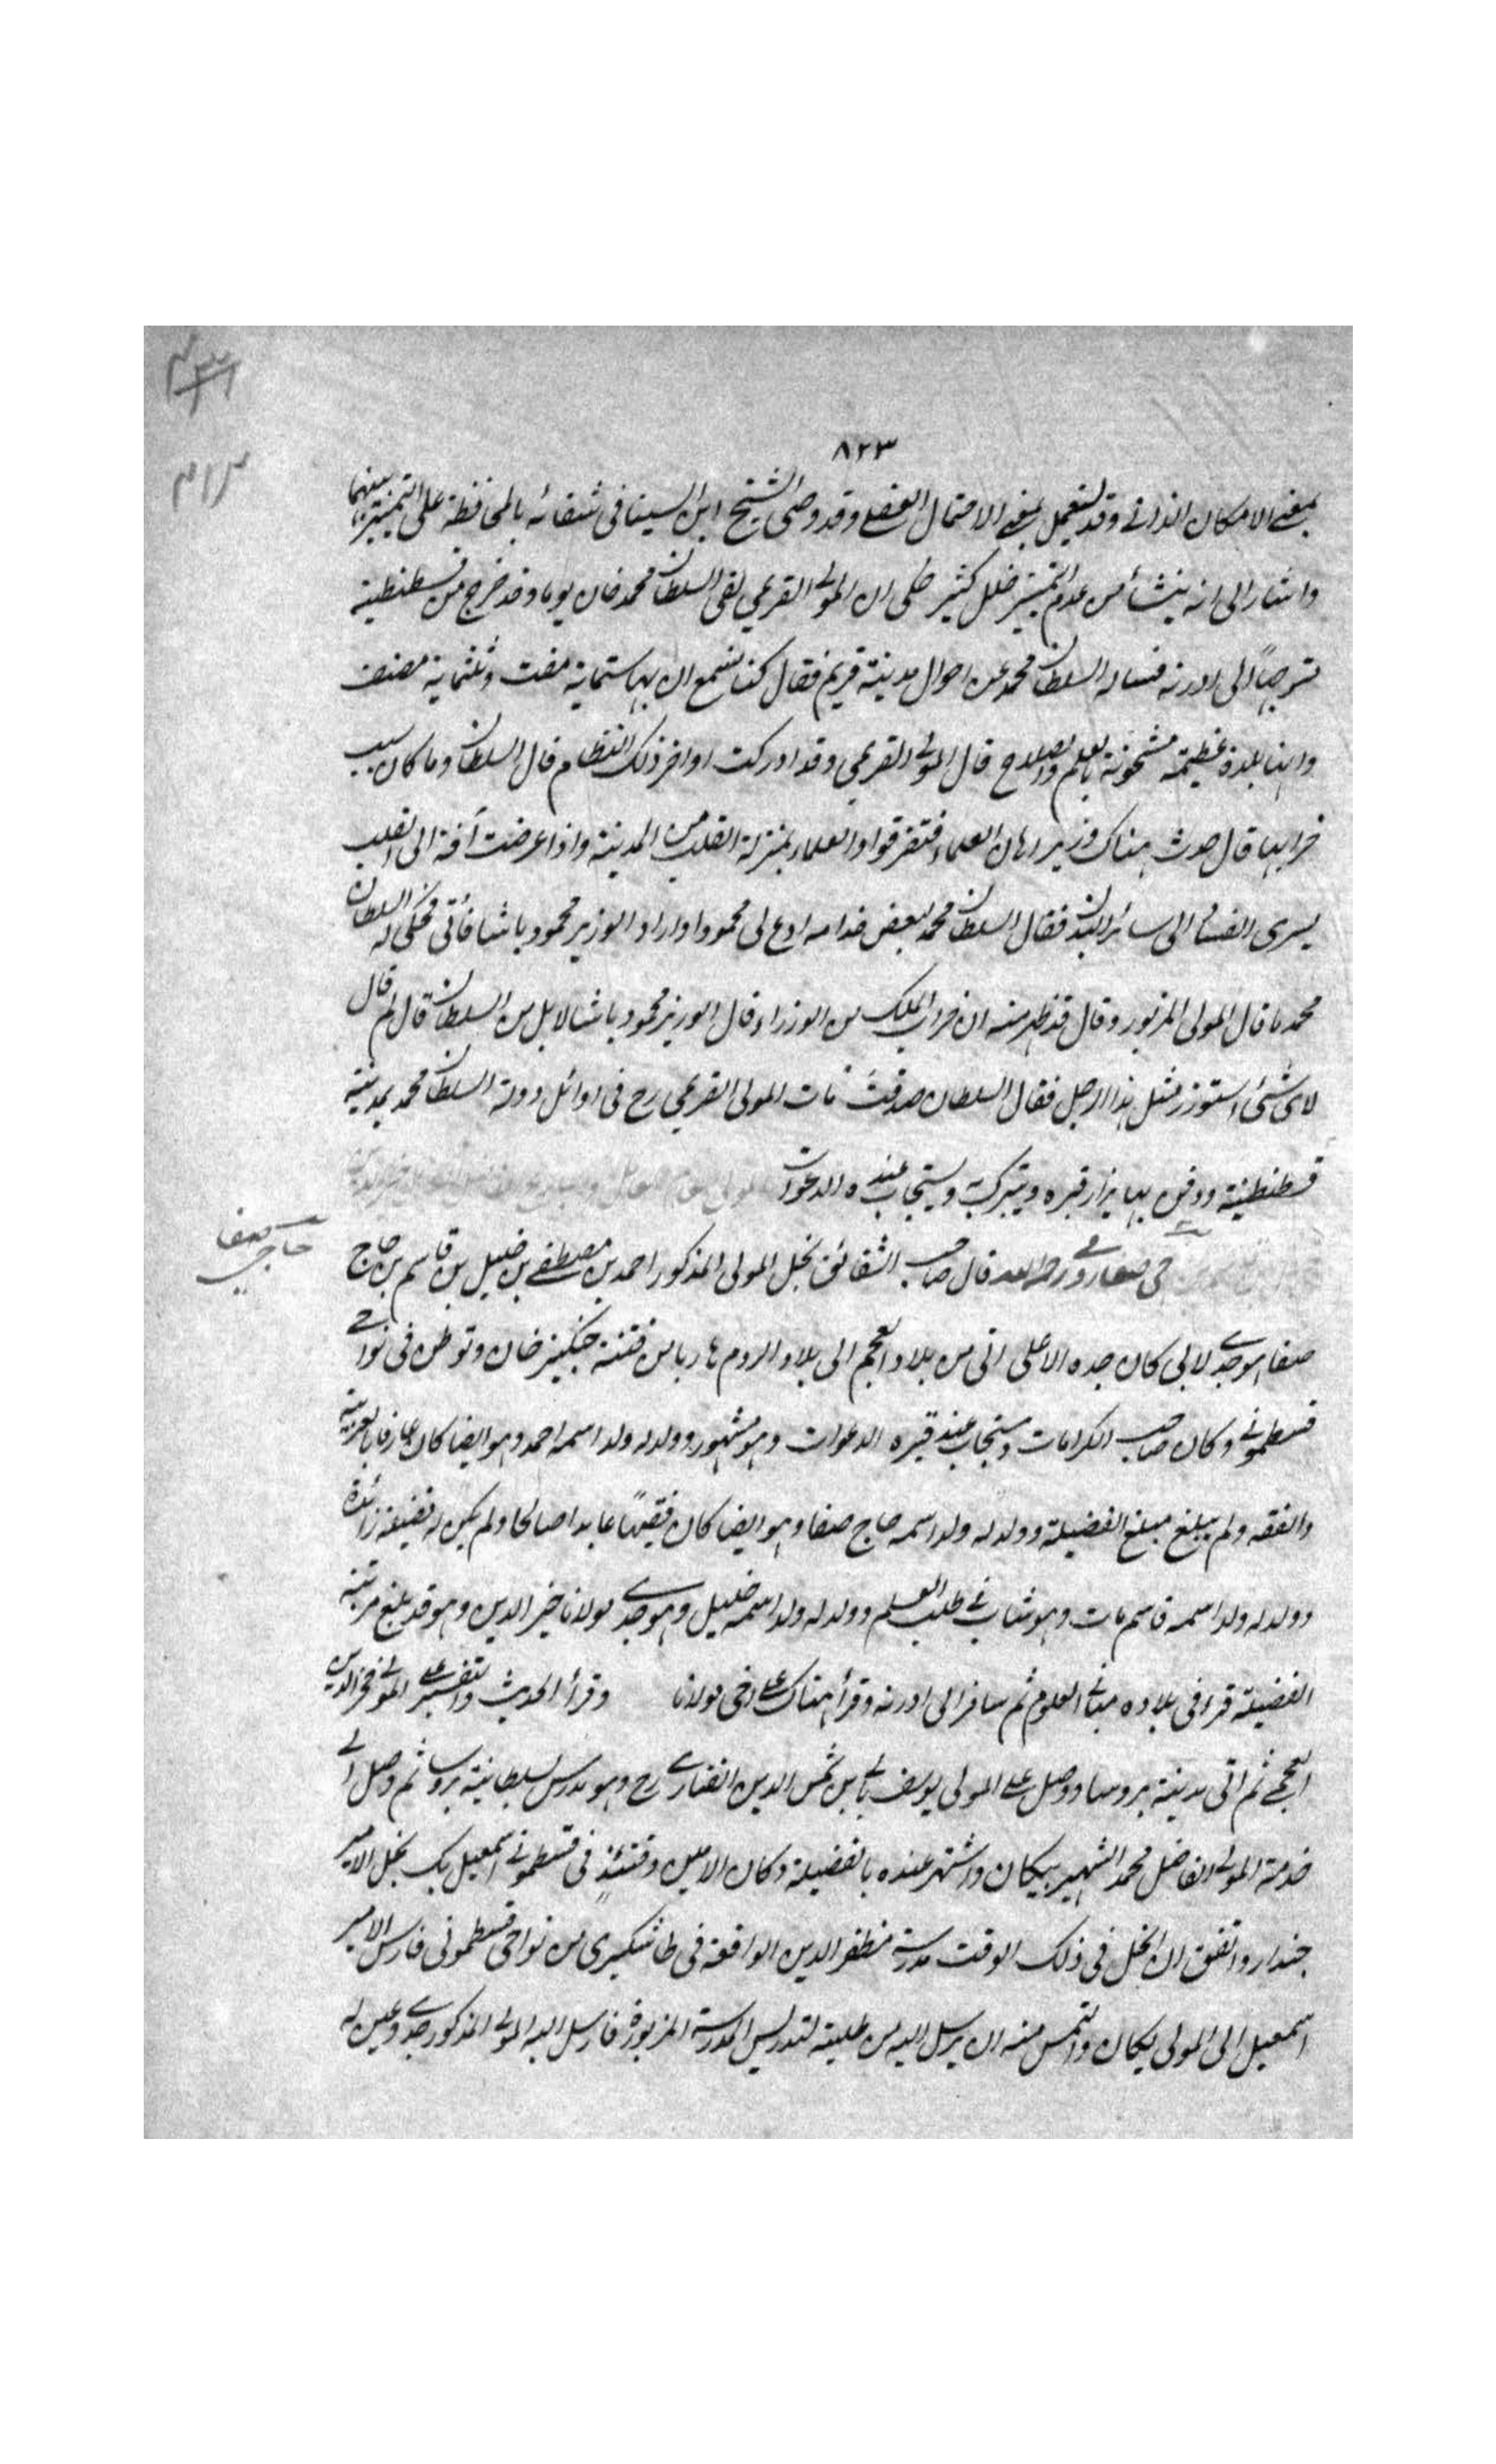 ٨٢٣
بمعنى الامكان الذاتى وقد يستعمل بمعنى الاحتمال العقلى وقد وصى الشيخ ابن السينا فى شفائه بالمحافظة على التمييز بينهما
واشار الى انه ينشأ من عدم التمييز خلل كثير حكى ان المولى القريمى لقى السلطان محمد خان يوما وقد خرج من قسطنطنية
متوجهاً الى ادرنه فساله السلطان محمد عن احوال مدينة قريم فقال كنا نسمع ان بها ستماية مفت وثلثماية مصنف
وانها بلدة عظيمة مشحونة بالعلم والصلاح قال المولى القريمى وقد ادركت اواخر ذلك النظام قال السلطان وما كان سبب
خرابها قال حدث هناك وزير اهان العلماء فتفرقوا والعلماء بمنزلة القلب من المدينة واذا عرضت آفة الى القلب
يسرى الفساد الى سائر البدن فقال السلطان محمد لبعض خدامه ادع لى محمودا واراد الوزير محمود باشا فاتى فحكى له السلطان
محمد ما قال المولى المزبور وقال قد ظهر منه ان خراب الملك من الوزراء قال الوزير محمود باشا لا بل من السلطان قال لم قال
لاى شئ استوزر مثل هذا الرجل فقال السلطان صدقت مات المولى القريمى رح فى اوائل دولة السلطان محمد بمدينة
قسطنطنية ودفن بها يزار قبره ويتبرك به ويستجاب عنده الدعوات
حاجى صفا رومى رحمه الله قال صاحب الشقائق نجل المولى المذكور احمد بن مصطفى بن خليل بن قاسم بن حاج
حاجى صفا
صفا هو جدى لابى كان جده الاعلى اتى من بلاد العجم الى بلاد الروم هاربا من فتنة جنكيز خان وتوطن فى نواحى
قسطمونى وكان صاحب الكرامات ويستجاب عند قبره الدعوات وهو مشهور وولد له ولد اسمه احمد وهو ايضا كان عارفا بالعربية
والفقه ولم يبلغ مبلغ الفضيلة وولد له ولد اسمه حاج صفا وهو ايضا كان فقيهاً عابدا صالحا ولم يكن له فضيلة زائدة
وولد له ولد اسمه قاسم مات وهو شاب فى طلب العلم وولد له ولد اسمه خليل وهو جدى مولانا خير الدين وهو قد بلغ مرتبة
الفضيلة قرا فى بلاده مبانى العلوم ثم سافر الى ادرنه وقرأ هناك على اخى مولانا وقرأ الحديث والتفسير على المولى فخر الدين
العجمى ثم اتى مدينة بروسا ووصل على المولى يوسف بالى بن شمس الدين الفنارى رح وهو مدرس بسلطانية بروسا ثم وصل الى
خدمة المولى الفاضل محمد الشهير بيكان واشتهر عنده بالفضيلة وكان الامير وقتئذٍ فى قسطمونى اسمعيل بك نجل الامير
جندار واتفق ان انحل فى ذلك الوقت مدرسة مظفر الدين الواقعة فى طاشكبرى من نواحى قسطمونى فارسل الامير
اسمعيل الى المولى يكان والتمس منه ان يرسل اليه من طلبته لتدريس المدرسة المزبورة فارسل اليه المولى المذكور جدى وعين له